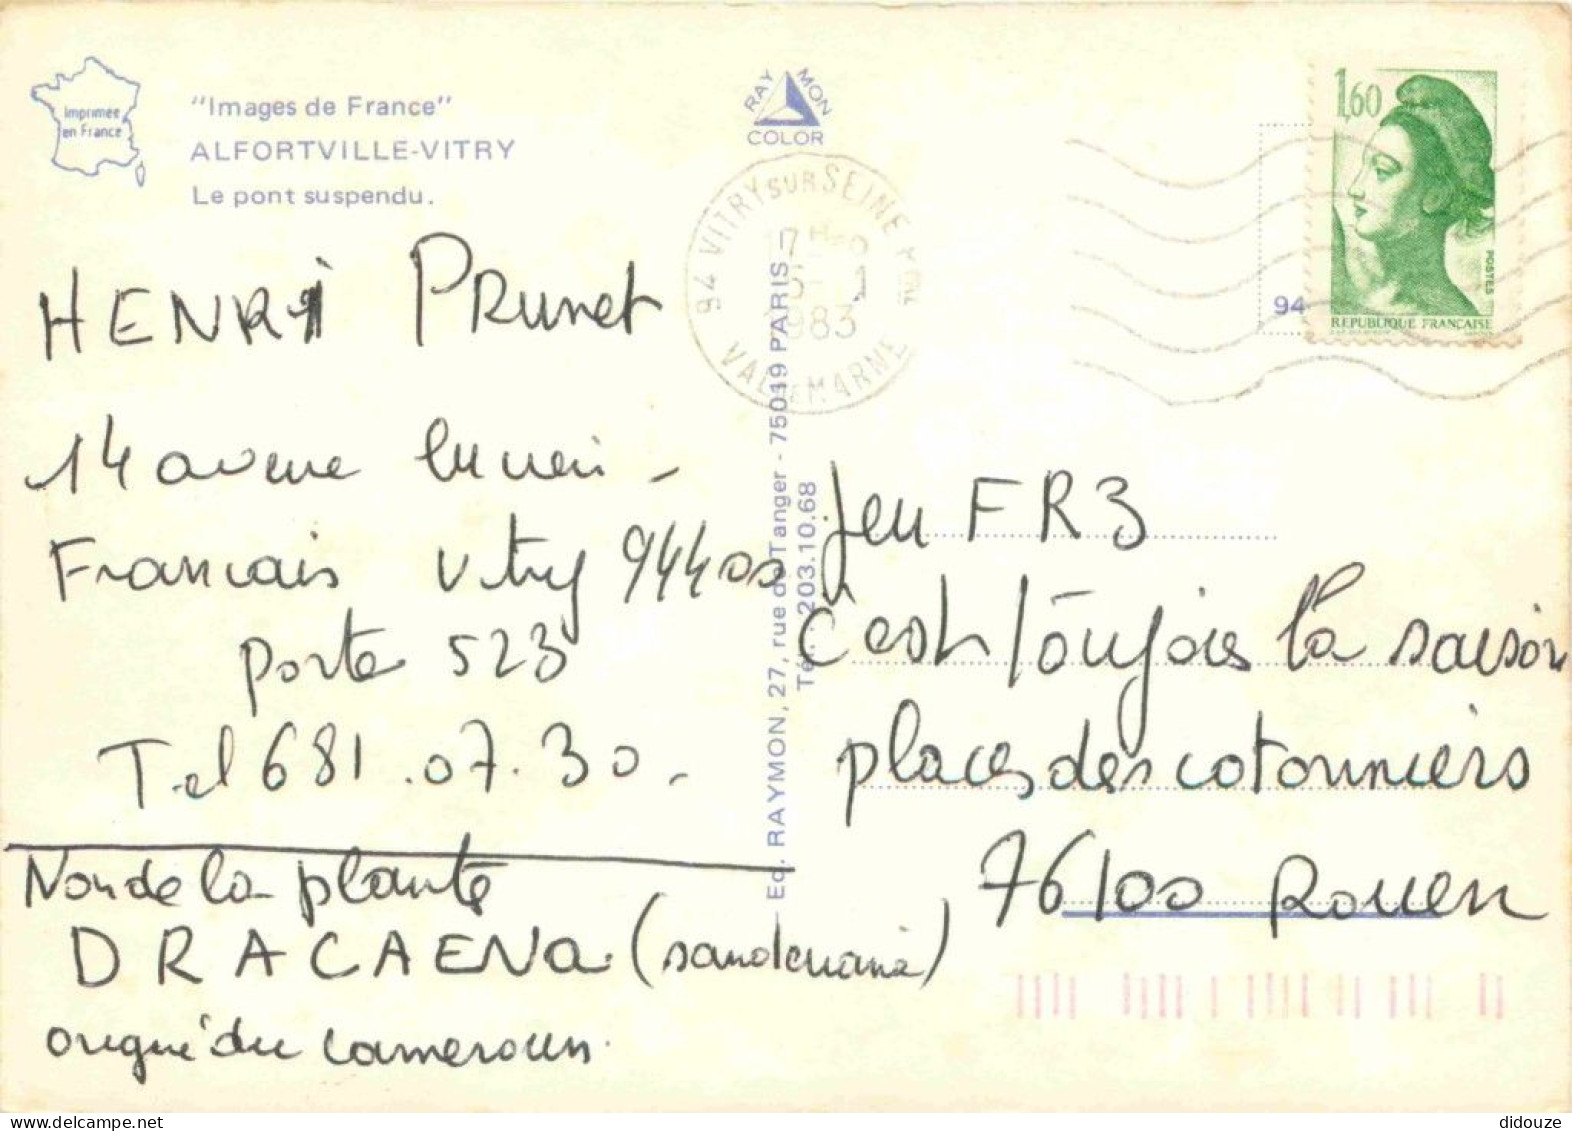 Imprimée
en France
"Images de France"
ALFORTVILLE-VITRY
Le pont suspendu.
RAYMON
COLOR
94 VITRY SUR SEINE
VAL DE MARNE
1983
1,60
POSTES
REPUBLIQUE FRANÇAISE
94
HENRI PRunet
14 avenue
Francais Vitry 94400
porte 523
Tel 681.07.30.
Nom de la plante
DRACAENa (sanderiana)
du cameroun
Ed. RAYMON, 27, rue de Tanger - 75019 PARIS
Tél. : 203.10.68
Jeu FR3
C'est toujours la saison
places des cotonniers
76100 Rouen
didouze